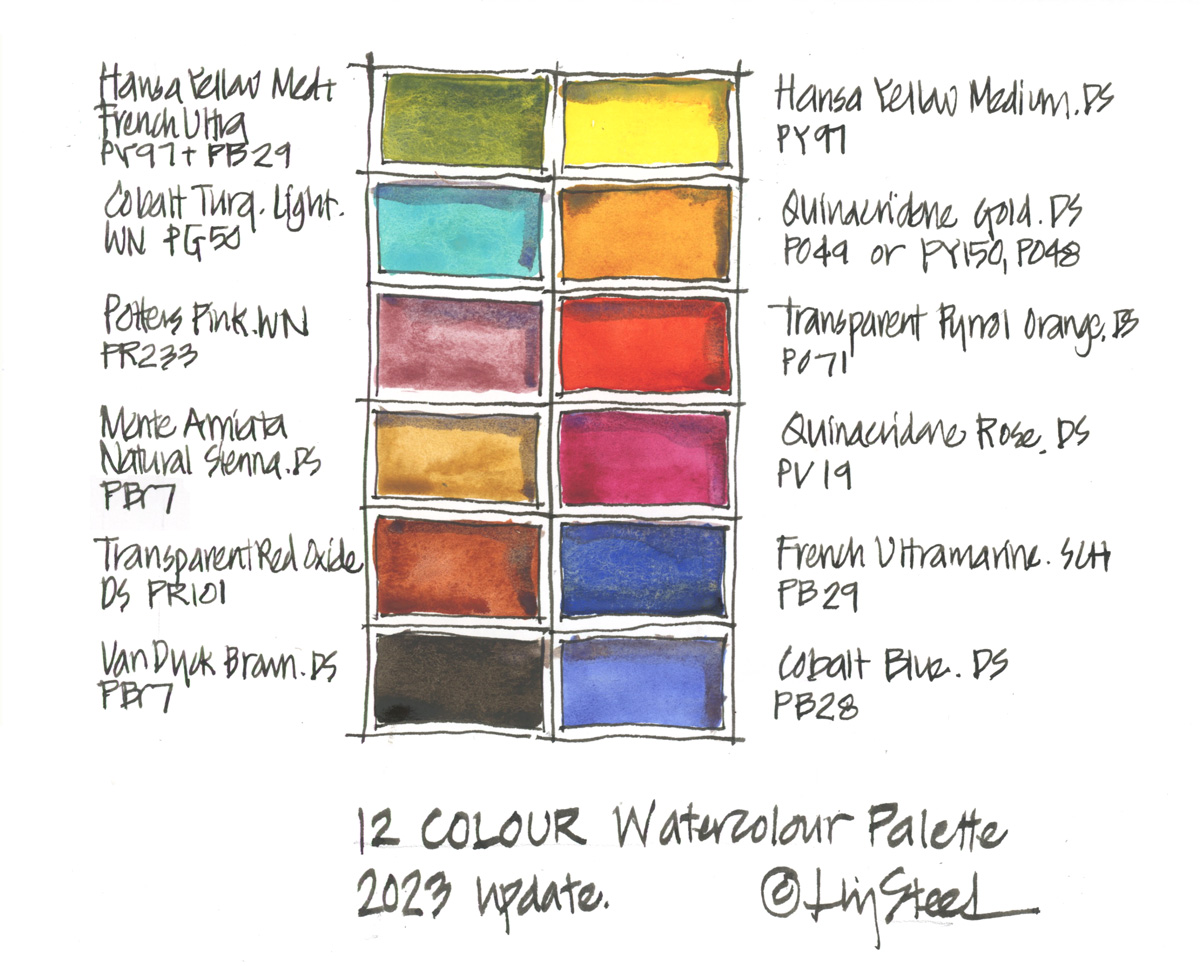 Hansa Yellow Med+
French Ultra
PY97 + PB29
Cobalt Turq. Light.
WN PG50
Potters Pink. WN
PR233
Monte Amiata
Natural Sienna. DS
PBr7
Transparent Red Oxide
DS PR101
Van Dyck Brown. DS
PBr7
Hansa Yellow Medium. DS
PY97
Quinacridone Gold. DS
PO49 or PY150, PO48
Transparent Pyrrol Orange. DS
PO71
Quinacridone Rose. DS
PV19
French Ultramarine. SCH
PB29
Cobalt Blue. DS
PB28
12 COLOUR Watercolour Palette
2023 update.
© Liz Steel